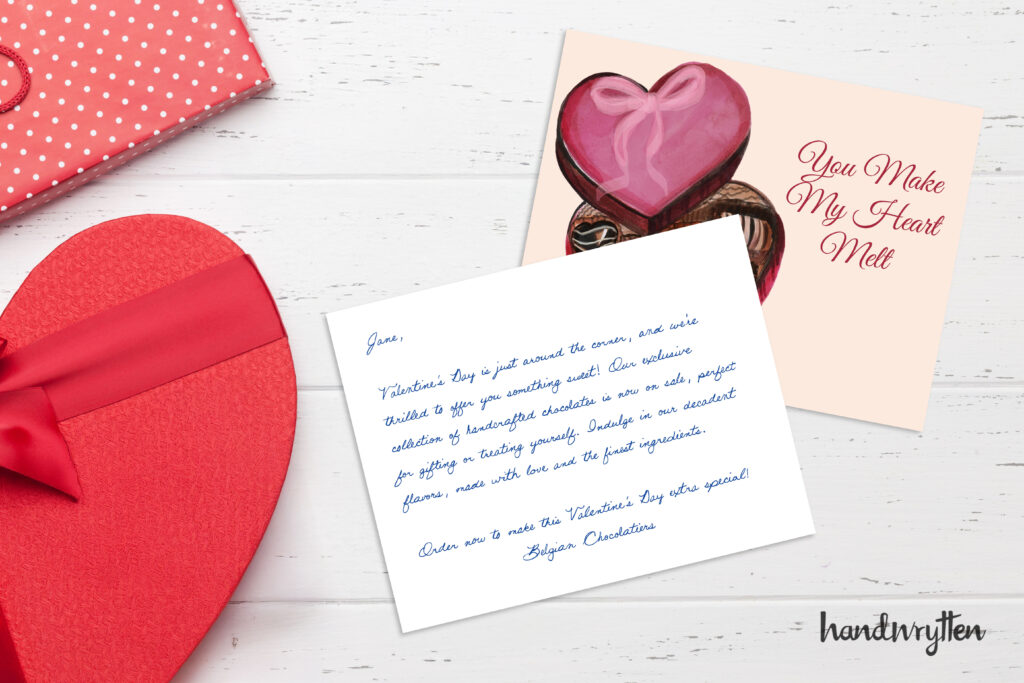 You Make
My Heart
Melt
Jane,
Valentine's Day is just around the corner, and we're
thrilled to offer you something sweet! Our exclusive
collection of handcrafted chocolates is now on sale, perfect
for gifting or treating yourself. Indulge in our decadent
flavors, made with love and the finest ingredients.
Order now to make this Valentine's Day extra special!
Belgian Chocolatiers
handwrytten